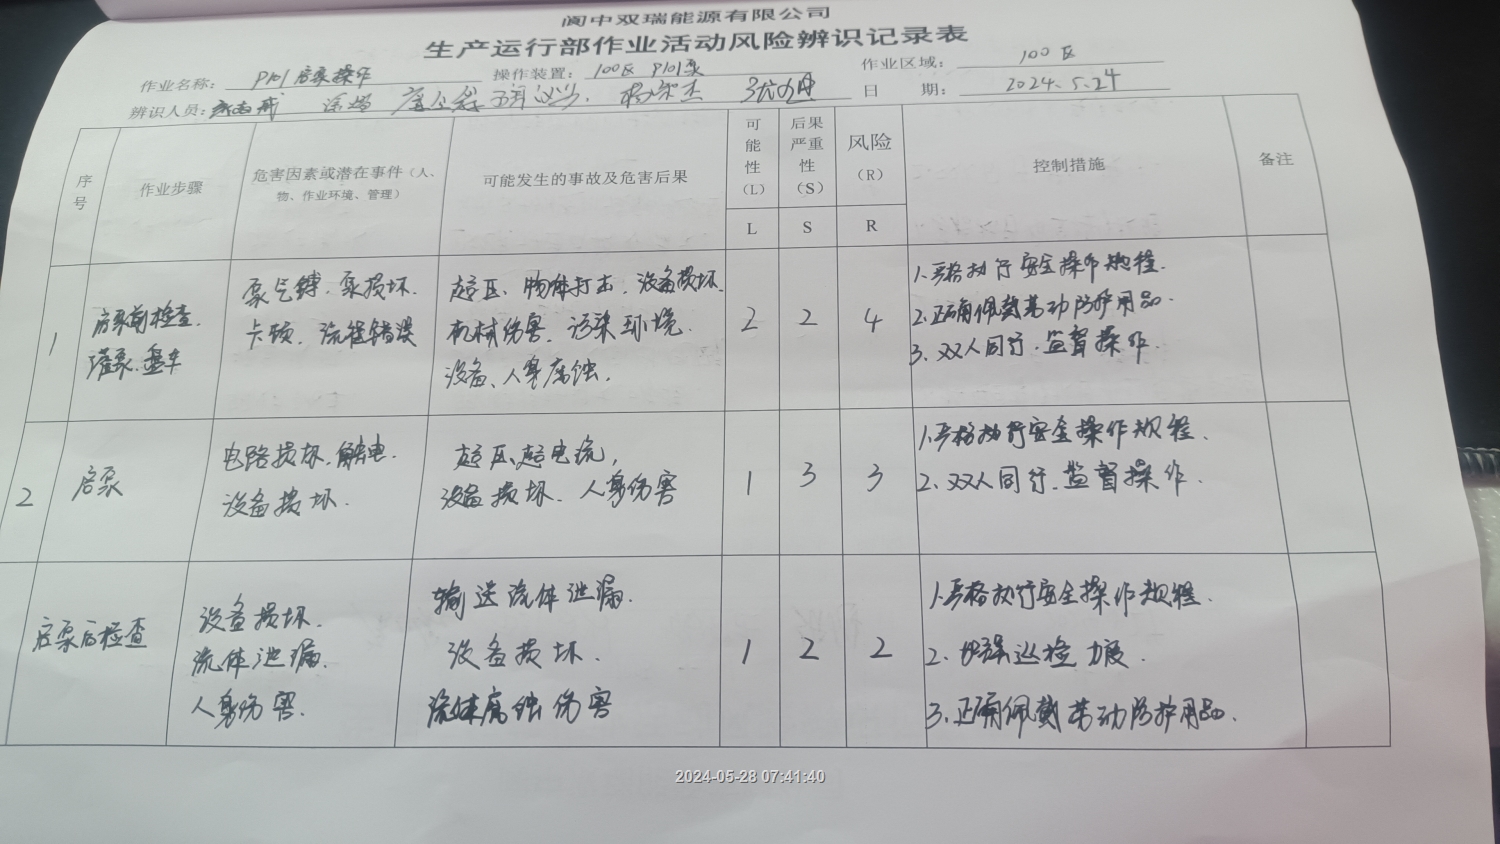 阆中双瑞能源有限公司
生产运行部作业活动风险辨识记录表
作业名称： P101启泵操作 操作装置： 100区 P101泵 作业区域： 100区
辨识人员： 日 期： 2024.5.24
序号 作业步骤 危害因素或潜在事件（人、物、作业环境、管理） 可能发生的事故及危害后果 可能性（L） 后果严重性（S） 风险（R） 控制措施 备注
L S R
1 启泵前检查. 灌泵.盘车
泵气缚.泵损坏.
卡顿.流程错误
超压、物体打击.设备损坏.
机械伤害.污染环境.
设备、人身腐蚀.
2 2 4
1.严格执行安全操作规程.
2.正确佩戴劳动防护用品.
3.双人同行.监督操作.
2 启泵
电路损坏.触电.
设备损坏.
超压、超电流,
设备损坏.人身伤害
1 3 3
1.严格执行安全操作规程.
2.双人同行.监督操作.
启泵后检查
设备损坏.
流体泄漏.
人身伤害.
输送流体泄漏.
设备损坏.
流体腐蚀伤害
1 2 2
1.严格执行安全操作规程.
2.加强巡检力度.
3.正确佩戴劳动防护用品.
2024-05-28 07:41:40